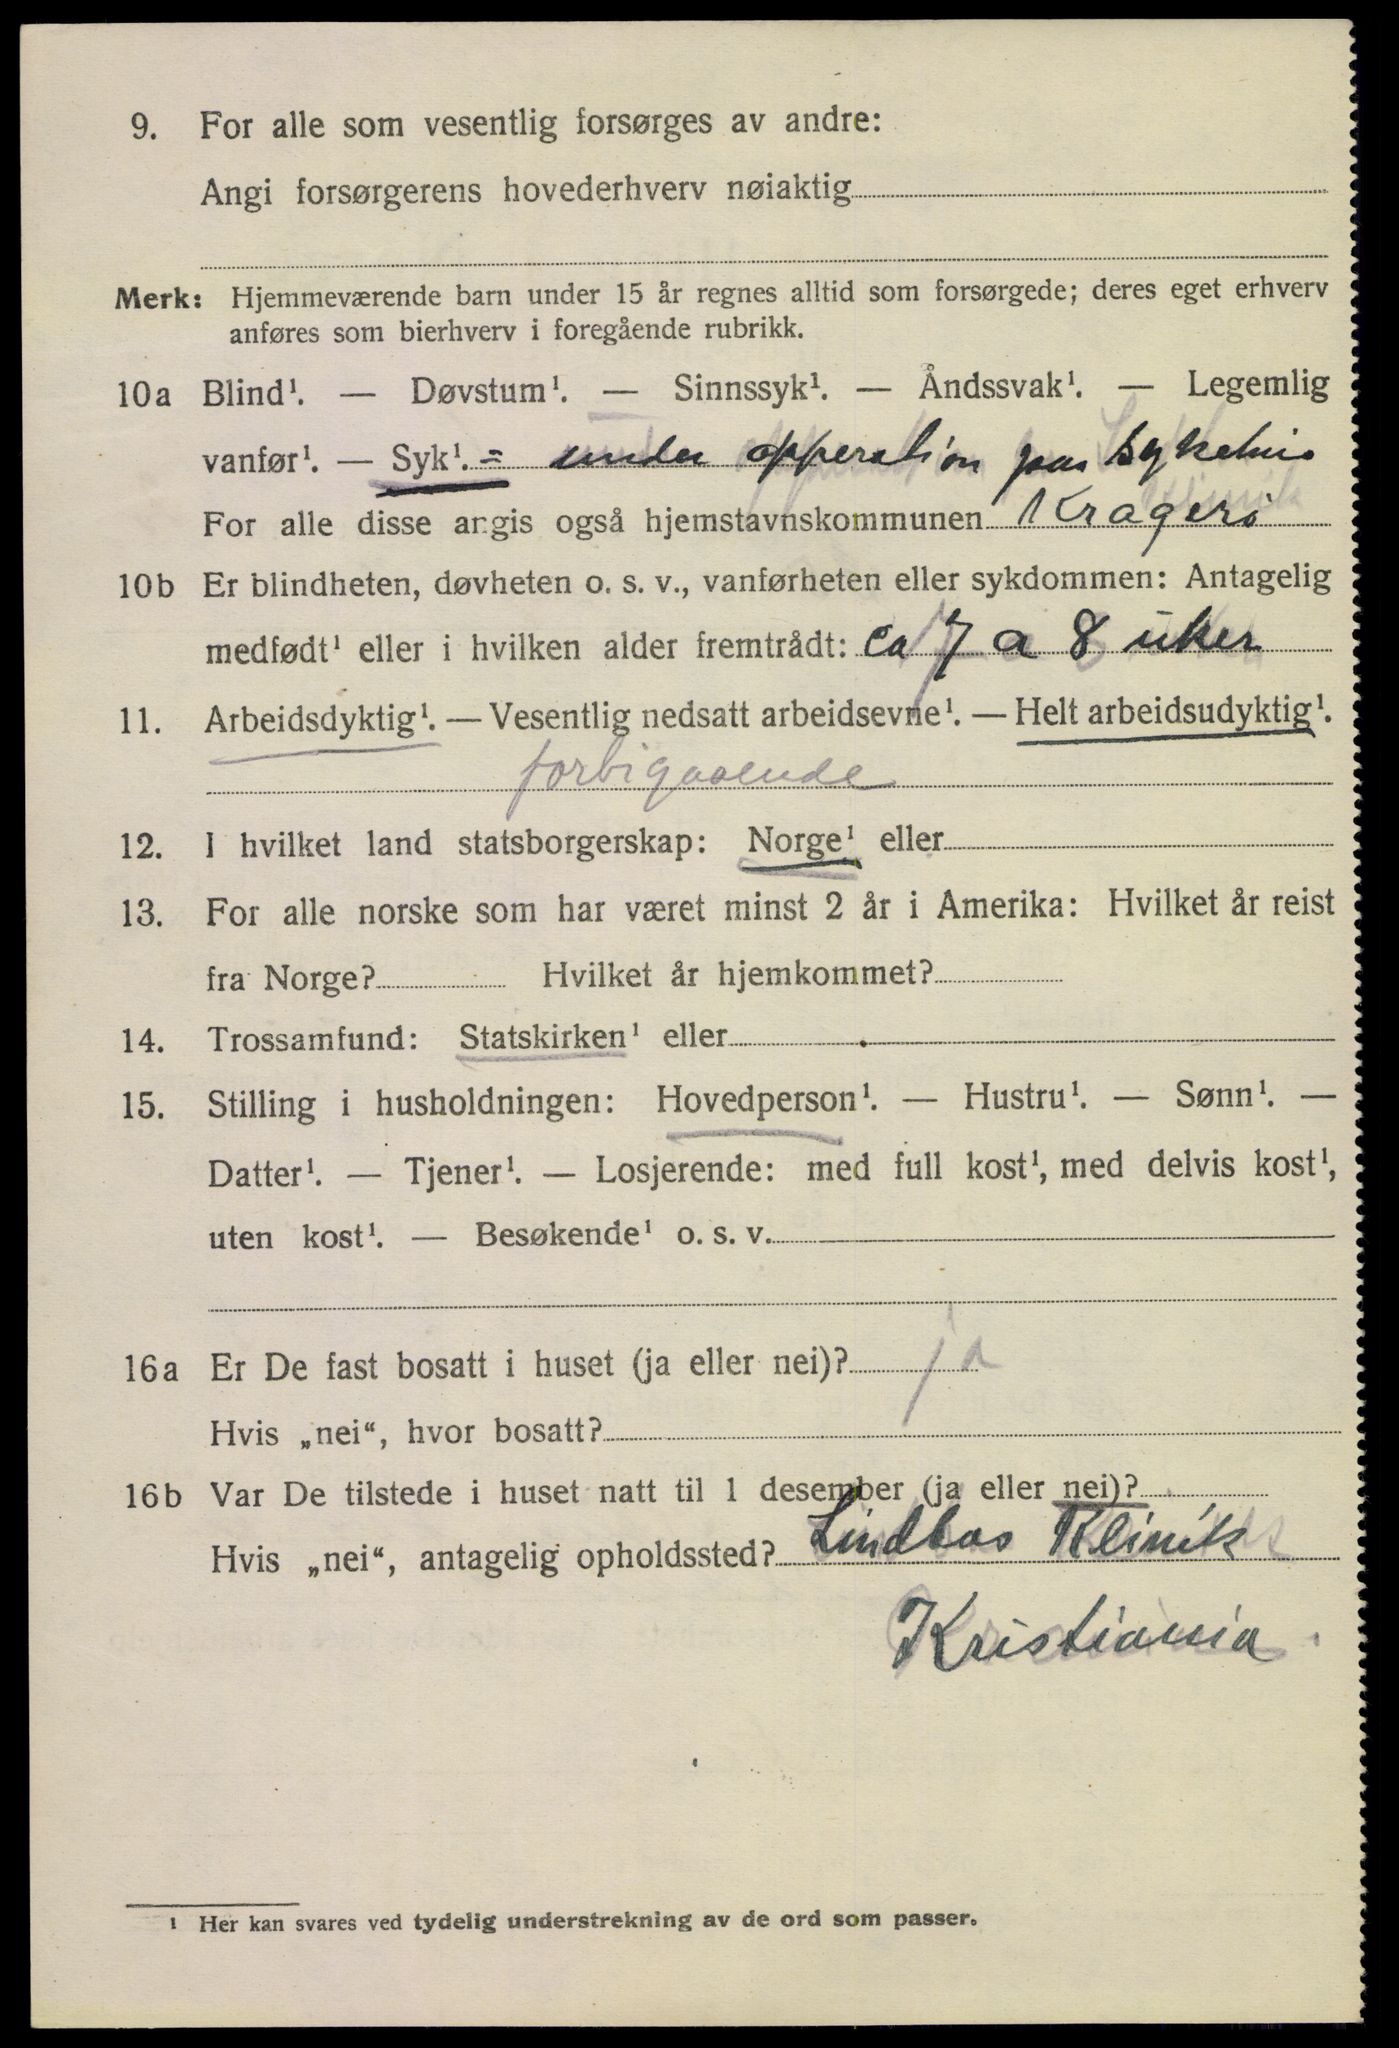 9. For alle som vesentlig forsørges av andre:
Angi forsørgerens hovederhverv nøiaktig
Merk: Hjemmeværende barn under 15 år regnes alltid som forsørgede; deres eget erhverv
anføres som bierhverv i foregående rubrikk.
10a Blind¹. — Døvstum¹. — Sinnssyk¹. — Åndssvak¹. — Legemlig
vanfør¹. — Syk¹. = under opperation paa sykehus
For alle disse angis også hjemstavnskommunen Kragerö
10b Er blindheten, døvheten o. s. v., vanførheten eller sykdommen: Antagelig
medfødt¹ eller i hvilken alder fremtrådt: ca 7 a 8 uker
11. Arbeidsdyktig¹. — Vesentlig nedsatt arbeidsevne¹. — Helt arbeidsudyktig¹.
forbigaaende
12. I hvilket land statsborgerskap: Norge¹ eller
13. For alle norske som har været minst 2 år i Amerika: Hvilket år reist
fra Norge? Hvilket år hjemkommet?
14. Trossamfund: Statskirken¹ eller
15. Stilling i husholdningen: Hovedperson¹. — Hustru¹. — Sønn¹. —
Datter¹. — Tjener¹. — Losjerende: med full kost¹, med delvis kost¹,
uten kost¹. — Besøkende¹ o. s. v.
16a Er De fast bosatt i huset (ja eller nei)? ja
Hvis „nei“, hvor bosatt?
16b Var De tilstede i huset natt til 1 desember (ja eller nei)?
Hvis „nei“, antagelig opholdssted? Lindbos Klinik
Kristiania
¹ Her kan svares ved tydelig understrekning av de ord som passer.